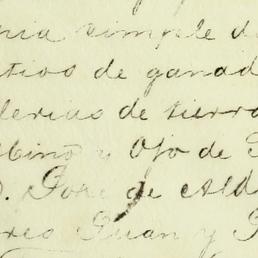 simple d
tios de ganad
lerias de tierra
y Ojo de
D. José de Ald
Juan y